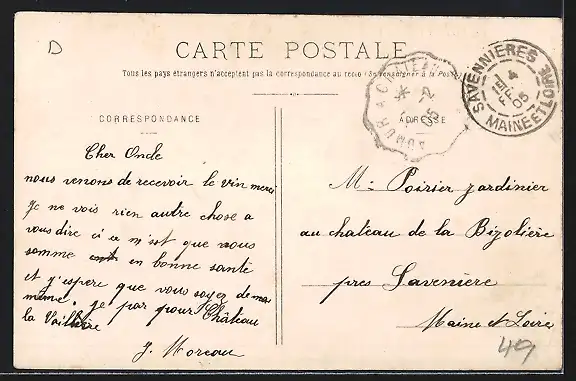 D
CARTE POSTALE
Tous les pays étrangers n'acceptent pas la correspondance au recto (Se renseigner à la Poste)
SAVENNIERES
4
FEVR
05
MAINE ET LOIRE
SAUMUR A
2
05
CORRESPONDANCE
ADRESSE
Cher Oncle
nous venons de recevoir le vin merci
Je ne vois rien autre chose a
vous dire ci ce n'est que nous
somme en bonne santé
et j'espere que vous soyez de
même. Je par pour Château
la Vallière
J. Moreau
Mr Poirier jardinier
au chateau de la Bizolière
pres Savenière
Maine et Loire
49